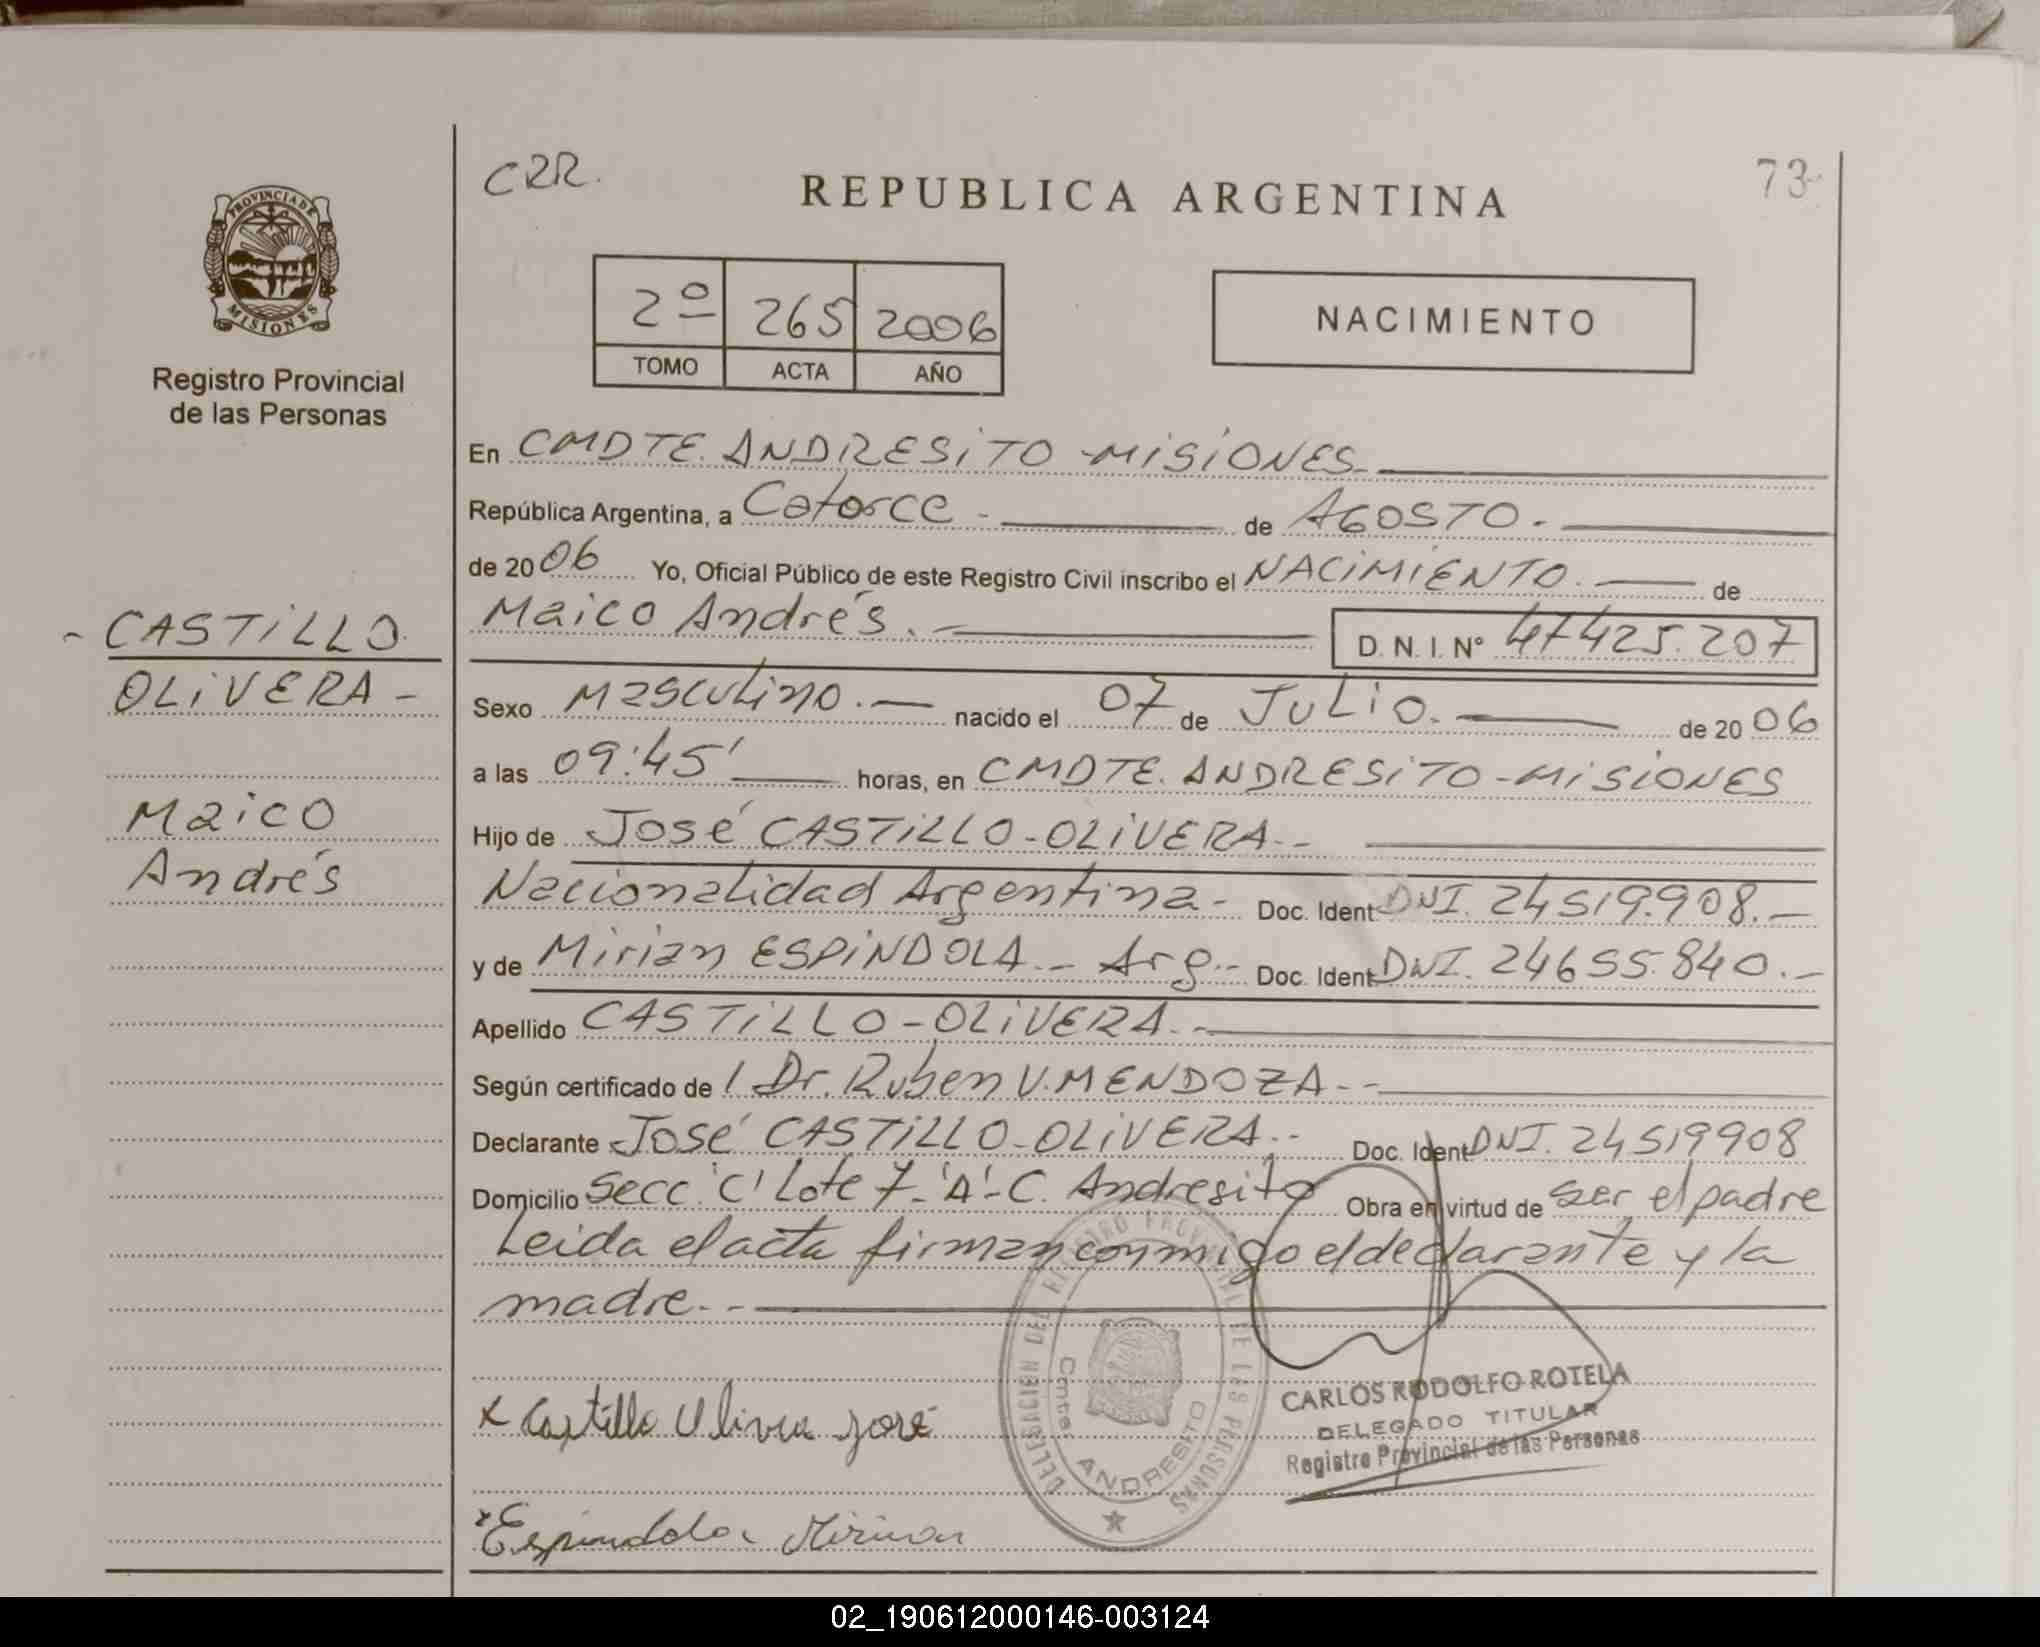 CRR.
REPUBLICA ARGENTINA
73
PROVINCIA DE
MISIONES
Registro Provincial
de las Personas
2º 265 2006
TOMO ACTA AÑO
NACIMIENTO
En CMDTE. ANDRESITO - MISIONES
República Argentina, a Catorce - de AGOSTO.
de 2006 Yo, Oficial Público de este Registro Civil inscribo el NACIMIENTO. de
Maico Andrés. - D.N.I. Nº 47425.207
- CASTILLO
OLIVERA -
Maico
Andrés
Sexo Masculino. - nacido el 07 de JULIO. de 2006
a las 09:45' horas, en CMDTE. ANDRESITO - MISIONES
Hijo de José CASTILLO-OLIVERA.-
Nacionalidad Argentina - Doc. Ident DNI. 24519.908.-
y de Mirian ESPINDOLA.- Arg.- Doc. Ident DNI. 24655.840.-
Apellido CASTILLO-OLIVERA.-
Según certificado de / Dr. Ruben V. MENDOZA.-
Declarante José CASTILLO-OLIVERA.- Doc. Ident DNI. 24519908
Domicilio Secc. 'C' Lote 7-'A'-C. Andresito Obra en virtud de ser el padre
Leida el acta firman conmigo el declarante y la
madre.-
DELEGACION DEL REGISTRO PROVINCIAL DE LAS PERSONAS
Cmte. ANDRESITO
CARLOS RODOLFO ROTELA
DELEGADO TITULAR
Registro Provincial de las Personas
x Castillo Olivera José
x Espindola Mirian
02_190612000146-003124